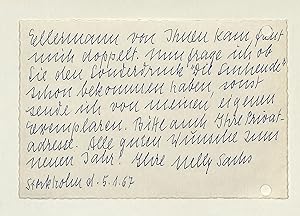 Ellermann von Ihnen kam, freut
mich doppelt. Nun frage ich ob
Sie den Sonderdruck "Die Suchende"
schon bekommen haben, sonst
sende ich von meinen eigenen
Exemplaren. Bitte auch Ihre Privat-
adresse. Alle guten Wünsche zum
neuen Jahr! Ihre Nelly Sachs
Stockholm d. 5.1.67